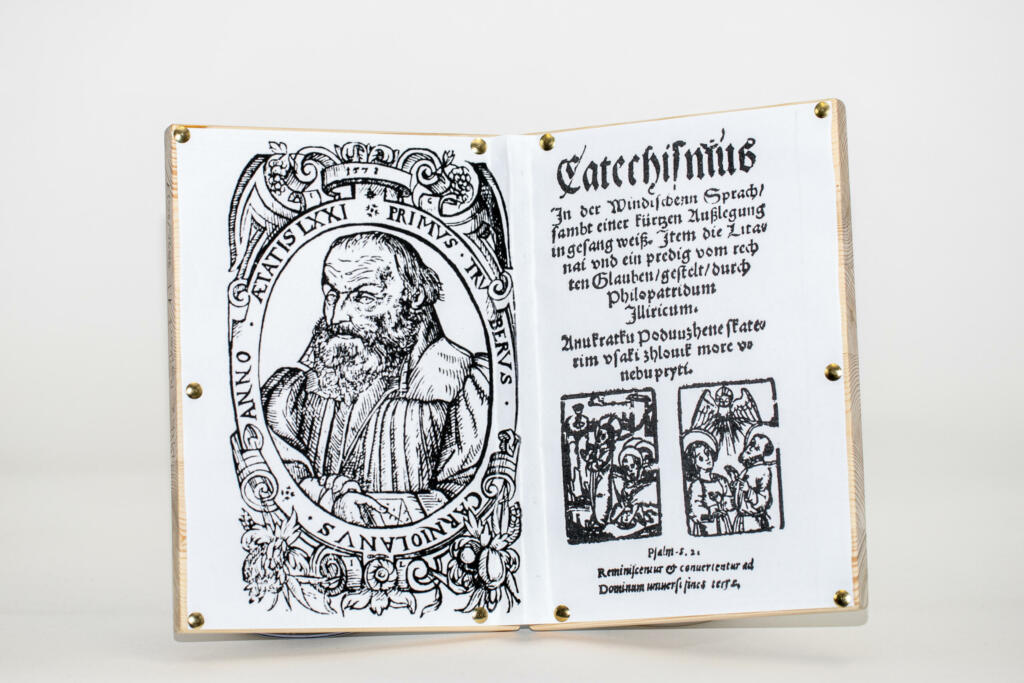 1578
ANNO · ÆTATIS LXXI PRIMVS · TRVBERVS · CARNIOLANVS ·
Catechiſmus
In der Windiſchenn Sprach/
ſambt einer kürtzen Außlegung
in geſang weiß. Item die Lita⸗
nai vnd ein predig vom rech
ten Glauben/geſtelt/durch
Philopatridum
Illiricum.
Anu kratku Poduuzhene ſkate⸗
rim vſaki zhlouik more vo
nebu pryti.
Pſalm. 5. 2.
Reminiſcentur & conuertentur ad
Dominum vniuerſi fines terræ.